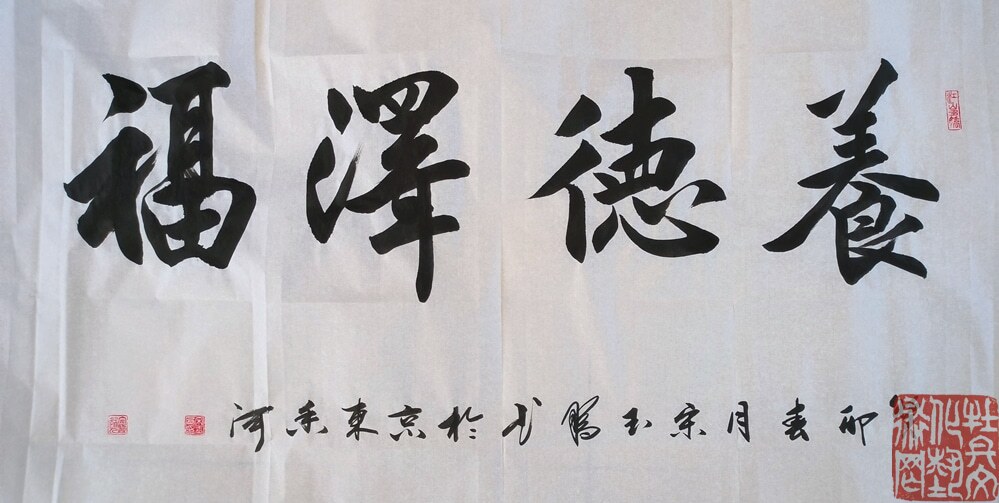 養德澤福
卯春月宋玉鵬書於京東香河